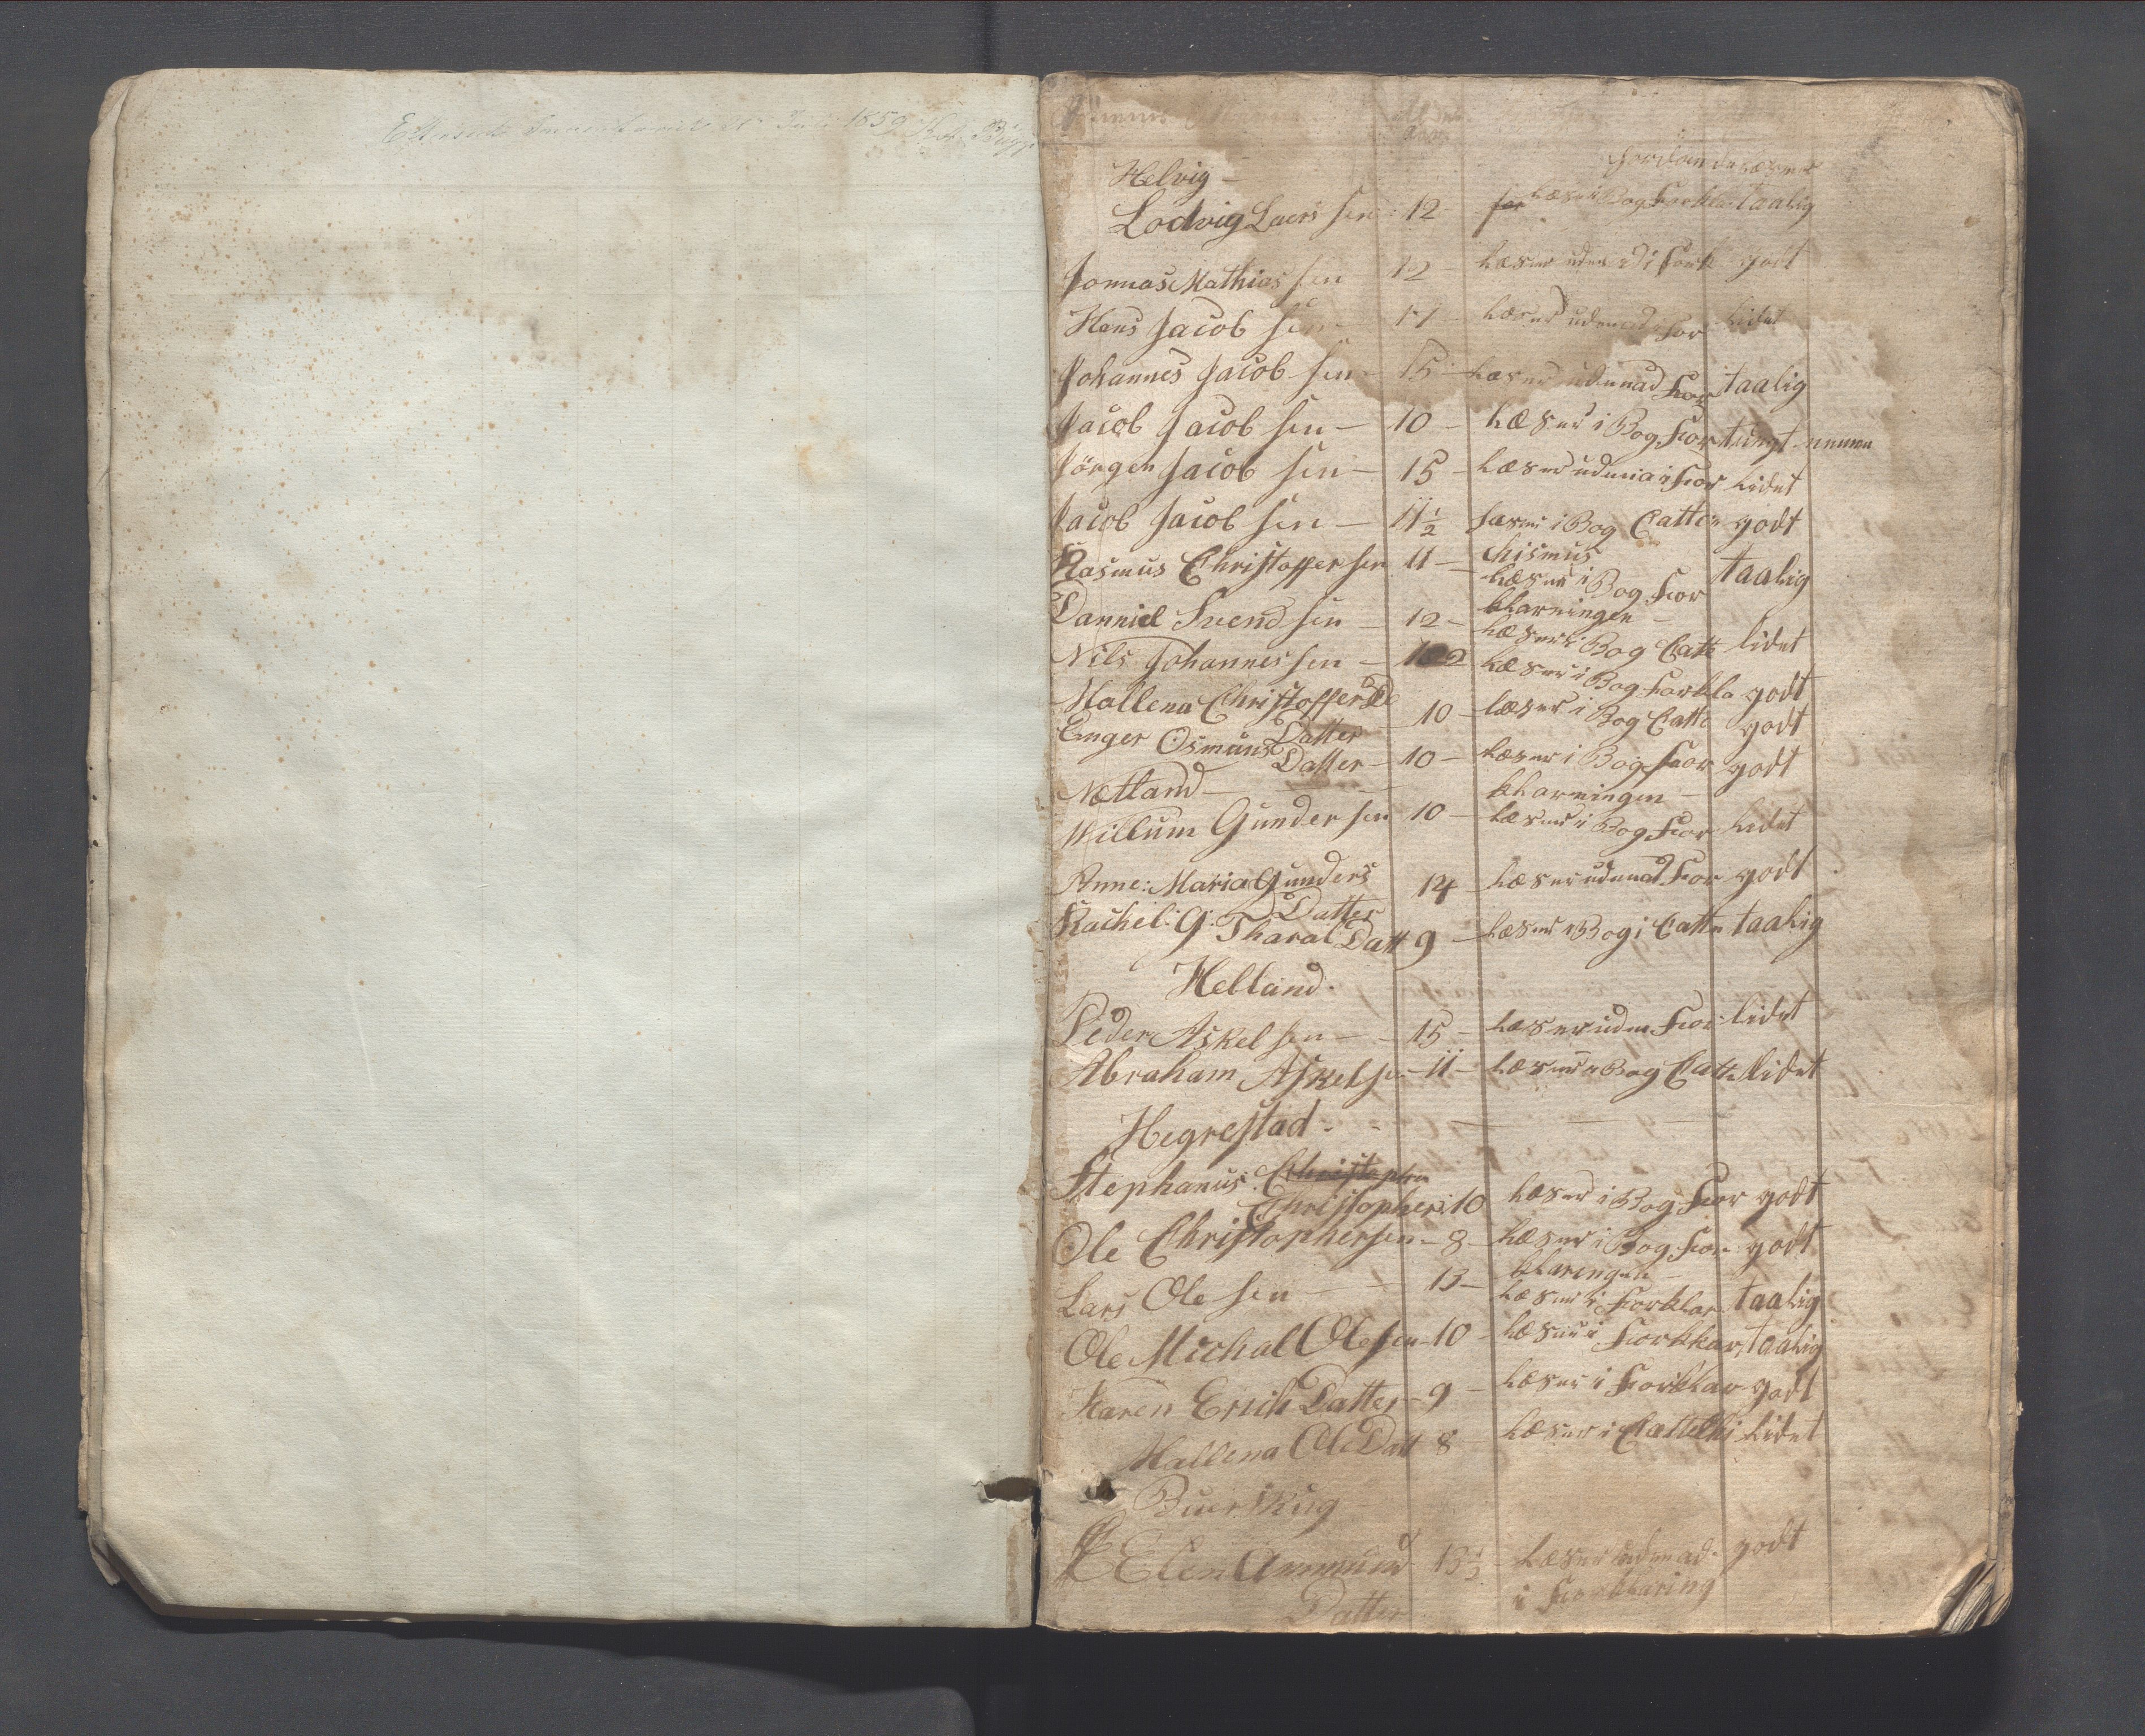 1859
Helvig -
Lodvig Laers sen - 12 - Læser i Bog Forkla taalig
Jonnas Mathias sen 12 - Læser uden i Fork godt
Hans Jacob sen - 17 - Læser udenad For lidet
Johannes Jacob sen - 15 - Læser udenad For taalig
Jacob Jacob sen - 10 - Læser i Bog For tungt nemen
Jörgen Jacob sen - 15 - Læser udena i For lidet
Jacob Jacob sen - 11 1/2 Læser i Bog Catte godt
chismus
Rasmus Christoffer sen 11 - Læser i Bog For taalig
klarningen -
Danniel Svend sen - 12 - Læser i Bog Catt lidet
Nils Johannes sen - Læser i Bog Forkla godt
Mallena Christoffer
Datter 10 - Læser i Bog Catte godt
Enger Osmuns Datter - 10 - Læser i Bog Foor godt
klarningen -
Nætland -
Willum Gunder sen 10 - Læser i Bog For lidet
Anne: Maria Gunders
Datter 14 - Læser udenad For godt
Rachel: G: Tharal Datt 9 - Læser i Bog i Catte taalig
Helland.
Peder Askel sen - 15 - Læser uden For lidet
Abraham Askelse - 11 - Læser i Bog Catte lidet
Hegrestad - -
Stephanus: Christophen
Christophers: 10 Læser i Bog For godt
Ole Christophersen - 8 - Læser i Bog For godt
klaringen -
Lars Ole sen - 13 - Læser i Forklar taalig
Ole Michal Olesen - 10 - Læser i Forklar taalig
Karen Erich Datter - 9 - Læser i Forklar godt
Mallena Ole Datt 8 - Læser i Cattechi lidet
Buerskug
Elen Ammund 13 1/2 - Læser udenad godt
Datter i Forklaring